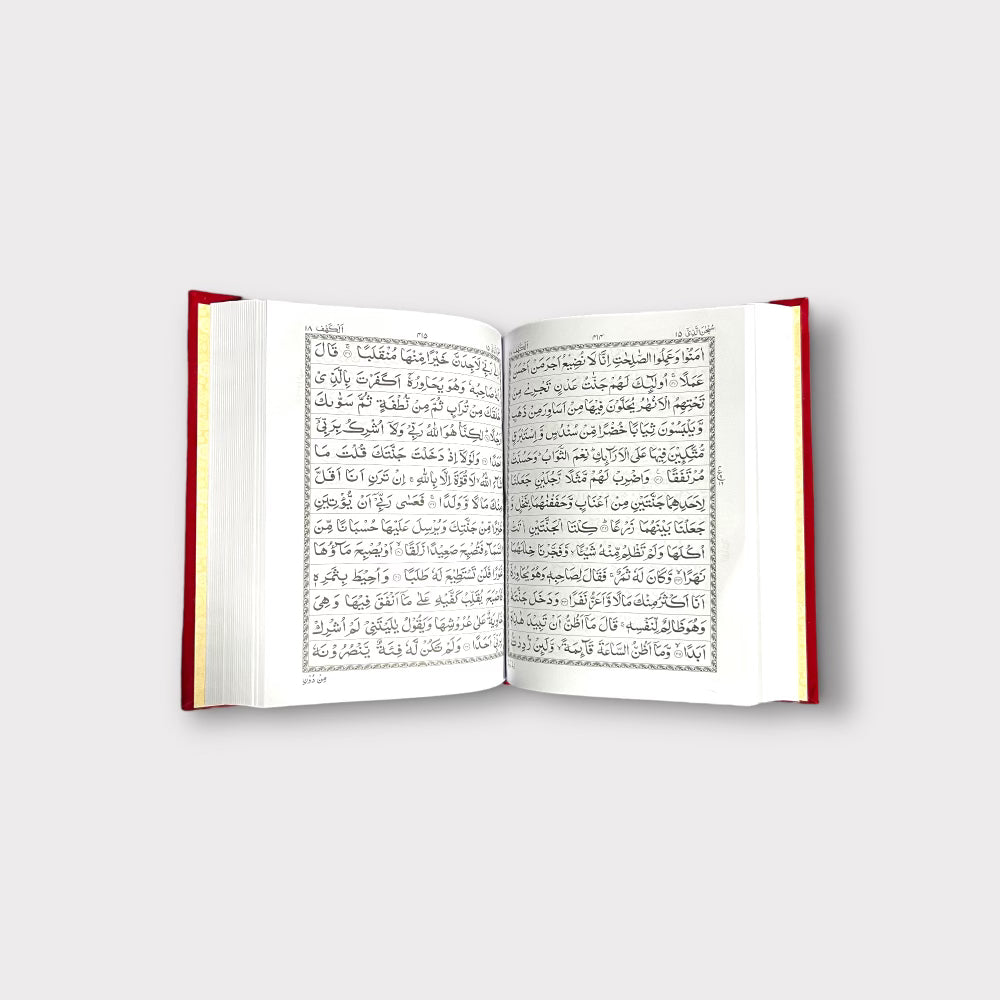 سُبْحٰنَ الَّذِیْۤ ١٥
٤١٤
اَلْكَهْف
اٰمَنُوْا وَعَمِلُوا الصّٰلِحٰتِ اِنَّا لَا نُضِیْعُ اَجْرَ مَنْ اَحْسَنَ
عَمَلًا اُولٰٓئِكَ لَهُمْ جَنّٰتُ عَدْنٍ تَجْرِیْ مِنْ
تَحْتِهِمُ الْاَنْهٰرُ یُحَلَّوْنَ فِیْهَا مِنْ اَسَاوِرَ مِنْ ذَهَبٍ
وَّیَلْبَسُوْنَ ثِیَابًا خُضْرًا مِّنْ سُنْدُسٍ وَّاِسْتَبْرَقٍ
مُّتَّكِـِٕیْنَ فِیْهَا عَلَی الْاَرَآئِكِ نِعْمَ الثَّوَابُ وَحَسُنَتْ
مُرْتَفَقًا وَاضْرِبْ لَهُمْ مَّثَلًا رَّجُلَیْنِ جَعَلْنَا
لِاَحَدِهِمَا جَنَّتَیْنِ مِنْ اَعْنَابٍ وَّحَفَفْنٰهُمَا بِنَخْلٍ وَّ
جَعَلْنَا بَیْنَهُمَا زَرْعًا كِلْتَا الْجَنَّتَیْنِ اٰتَتْ
اُكُلَهَا وَلَمْ تَظْلِمْ مِّنْهُ شَیْـًٔا وَّفَجَّرْنَا خِلٰلَهُمَا
نَهَرًا وَّكَانَ لَهٗ ثَمَرٌ فَقَالَ لِصَاحِبِهٖ وَهُوَ یُحَاوِرُهٗۤ
اَنَا اَكْثَرُ مِنْكَ مَالًا وَّاَعَزُّ نَفَرًا وَدَخَلَ جَنَّتَهٗ
وَهُوَ ظَالِمٌ لِّنَفْسِهٖ قَالَ مَاۤ اَظُنُّ اَنْ تَبِیْدَ هٰذِهٖۤ
اَبَدًا وَّمَاۤ اَظُنُّ السَّاعَةَ قَآئِمَةً وَّلَئِنْ رُّدِدْتُّ
اَلْكَهْف ١٨
٤١٥
رَبِّیْ لَاَجِدَنَّ خَیْرًا مِّنْهَا مُنْقَلَبًا قَالَ
لَهٗ صَاحِبُهٗ وَهُوَ یُحَاوِرُهٗۤ اَكَفَرْتَ بِالَّذِیْ
خَلَقَكَ مِنْ تُرَابٍ ثُمَّ مِنْ نُّطْفَةٍ ثُمَّ سَوّٰىكَ
رَجُلًا لٰكِنَّا۠ هُوَ اللّٰهُ رَبِّیْ وَلَاۤ اُشْرِكُ بِرَبِّیْۤ
اَحَدًا وَلَوْلَاۤ اِذْ دَخَلْتَ جَنَّتَكَ قُلْتَ مَا
شَآءَ اللّٰهُ لَا قُوَّةَ اِلَّا بِاللّٰهِ اِنْ تَرَنِ اَنَا اَقَلَّ
مِنْكَ مَالًا وَّوَلَدًا فَعَسٰی رَبِّیْۤ اَنْ یُّؤْتِیَنِ
خَیْرًا مِّنْ جَنَّتِكَ وَیُرْسِلَ عَلَیْهَا حُسْبَانًا مِّنَ
السَّمَآءِ فَتُصْبِحَ صَعِیْدًا زَلَقًا اَوْ یُصْبِحَ مَآؤُهَا
غَوْرًا فَلَنْ تَسْتَطِیْعَ لَهٗ طَلَبًا وَاُحِیْطَ بِثَمَرِهٖ
فَاَصْبَحَ یُقَلِّبُ كَفَّیْهِ عَلٰی مَاۤ اَنْفَقَ فِیْهَا وَهِیَ
خَاوِیَةٌ عَلٰی عُرُوْشِهَا وَیَقُوْلُ یٰلَیْتَنِیْ لَمْ اُشْرِكْ
بِرَبِّیْۤ اَحَدًا وَلَمْ تَكُنْ لَّهٗ فِئَةٌ یَّنْصُرُوْنَهٗ
مِنْ دُوْنِ